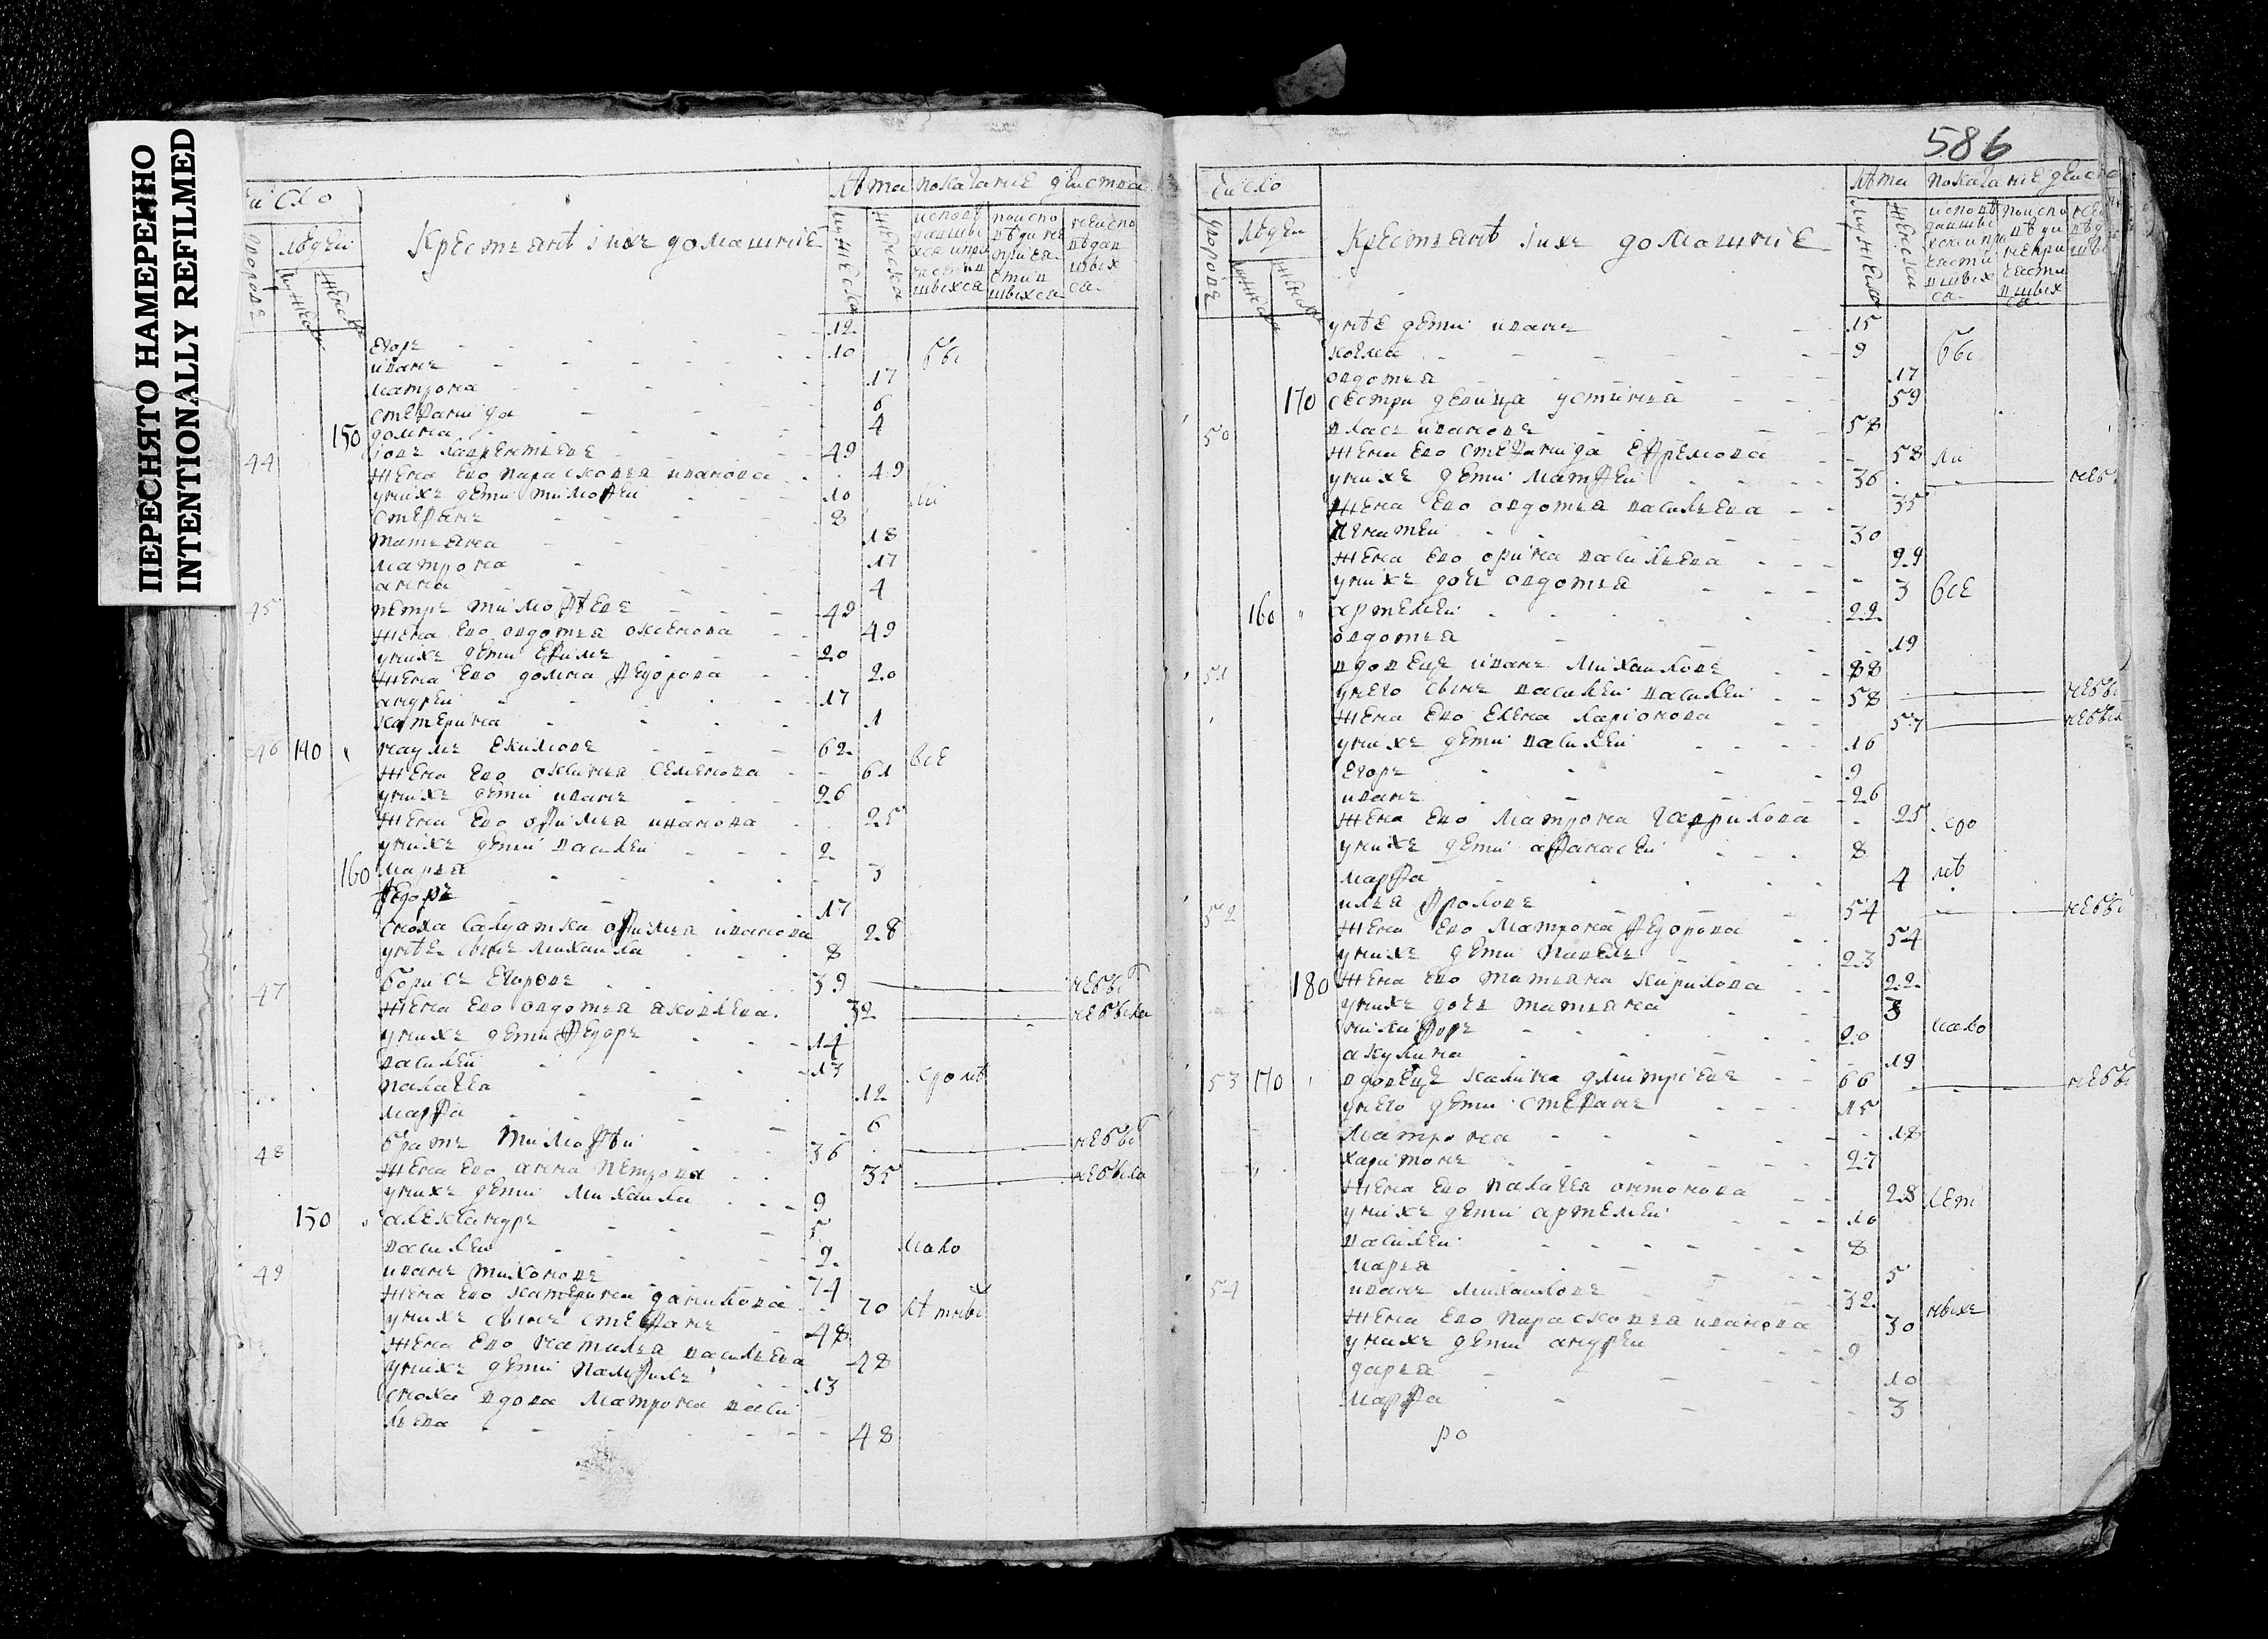 ПЕРЕСНЯТО НАМЕРЕННО
INTENTIONALLY REFILMED
число
лѣта показание действа
людей
Крестьянъ и ихъ домашние
мужеска
женска
Егоръ 12
иванъ 10
матрона 17
степанида 6
150 домна 4
44 иовъ лаврентьевъ 49
жена ево парасковья иванова 49
у нихъ дети тимофей 10
степанъ 8
татьяна 18
матрона 17
анна 4
45 петръ тимофѣевъ 49
жена ево овдотья оксенова 49
у нихъ дети ефимъ 20
жена ево домна федорова 20
андрей 17
катерина 1
46 140 наумъ екимовъ 62
жена ево окилина семенова 61 все
у нихъ дети иванъ 26
жена ево офимья иванова 25
у нихъ дети василей 2
160 марья 3
федоръ 17
сноха салдатка офимья иванова 28
у нѣе сынъ михаила 8
47 борисъ егоровъ 39 не бы
жена ево овдотья яковлева 32 не была
у нихъ дети федоръ 14
василей 13
палагея 12
марфа 6
48 братъ тимофѣй 36 не бы
жена ево анна петрова 35 не была
у нихъ дети михаила 9
150 александръ 5
василей 2 мало
49 иванъ тихоновъ 74
жена ево катерина данилова 70 лѣтны
у нихъ сынъ степанъ 48
жена ево наталья васильева 48
у нихъ дети памфилъ 13
сноха вдова матрона васи
льева 48
586
число
лѣта показание дейст
людей
Крестьянъ и ихъ домашние
у нѣе дети иванъ 15
козма 9
овдотья 17
170 сестра девица устинья 59
50 власъ ивановъ 58
жена ево степанида ефремова 58
у нихъ дети матфей 36
жена ево овдотья васильева 35
игнатей 30
жена ево орина васильева 29
у нихъ дочь овдотья 3 все
160 артемей 22
овдотья 19
51 вдовецъ иванъ михаиловъ 88
у него сынъ василей василей 58 не бы
жена ево елена ларионова 57 не был
у нихъ дети василей 16
егоръ 9
иванъ 26
жена ево матрона гаврилова 25
у нихъ дети афанасей 8
марфа 4
52 илья фроловъ 54 не бы
жена ево матрона федорова 54
у нихъ дети павелъ 23
180 жена ево татьяна кирилова 22
у нихъ дочь татьяна 3
никифоръ 20 мало
акулина 19
53 170 вдовецъ калина дмитриевъ 66 не бы
у него дети степанъ 15
матрона 18
харитонъ 27
жена ево палагея онтонова 28 лет
у нихъ дети артемей 10
василей 8
марья 5
54 иванъ михаиловъ 32
жена ево парасковья иванова 30 ныхъ
у нихъ дети андрей 9
дарья 10
марфа 3
ро